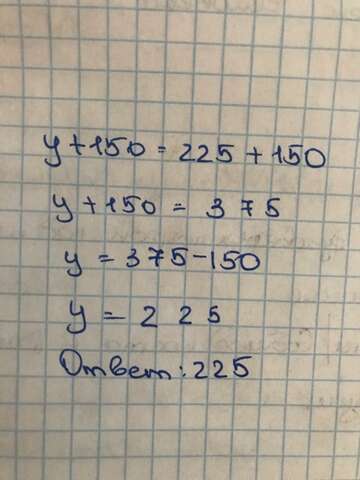 y + 150 = 225 + 150
y + 150 = 375
y = 375 - 150
y = 225
Ответ: 225